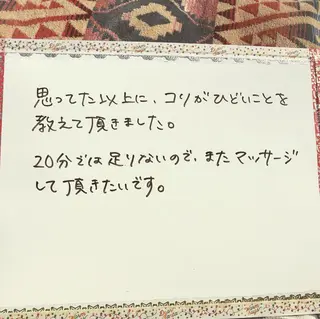 思ってた以上に、コリがひどいことを
教えて頂きました。
20分では足りないので、また マッサージ
して頂きたいです。